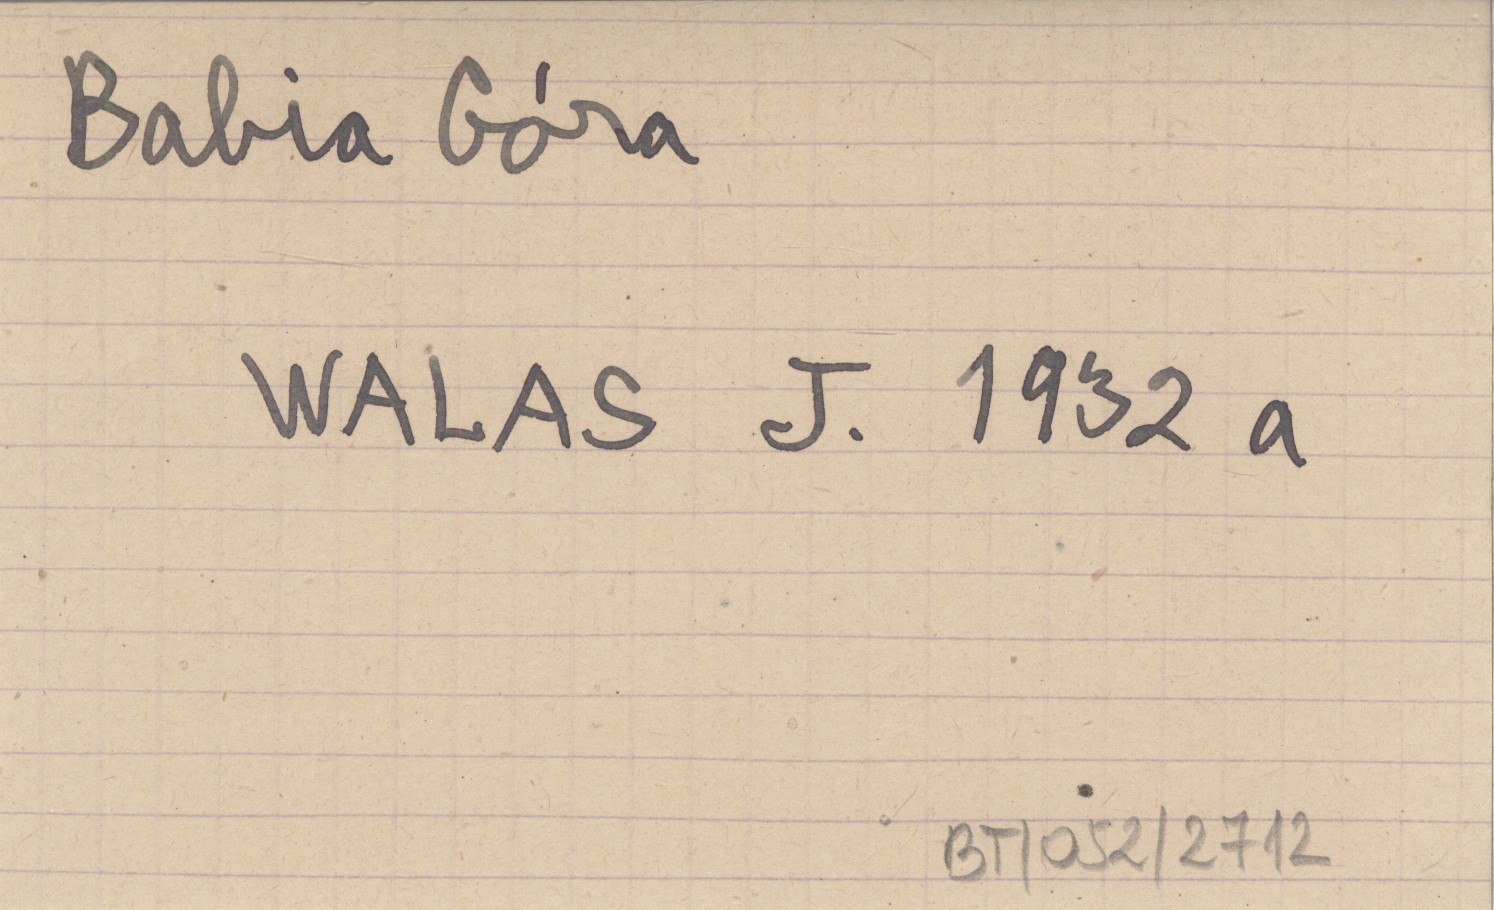 Babia Góra
WALAS J. 1932 a
BT/052/2712